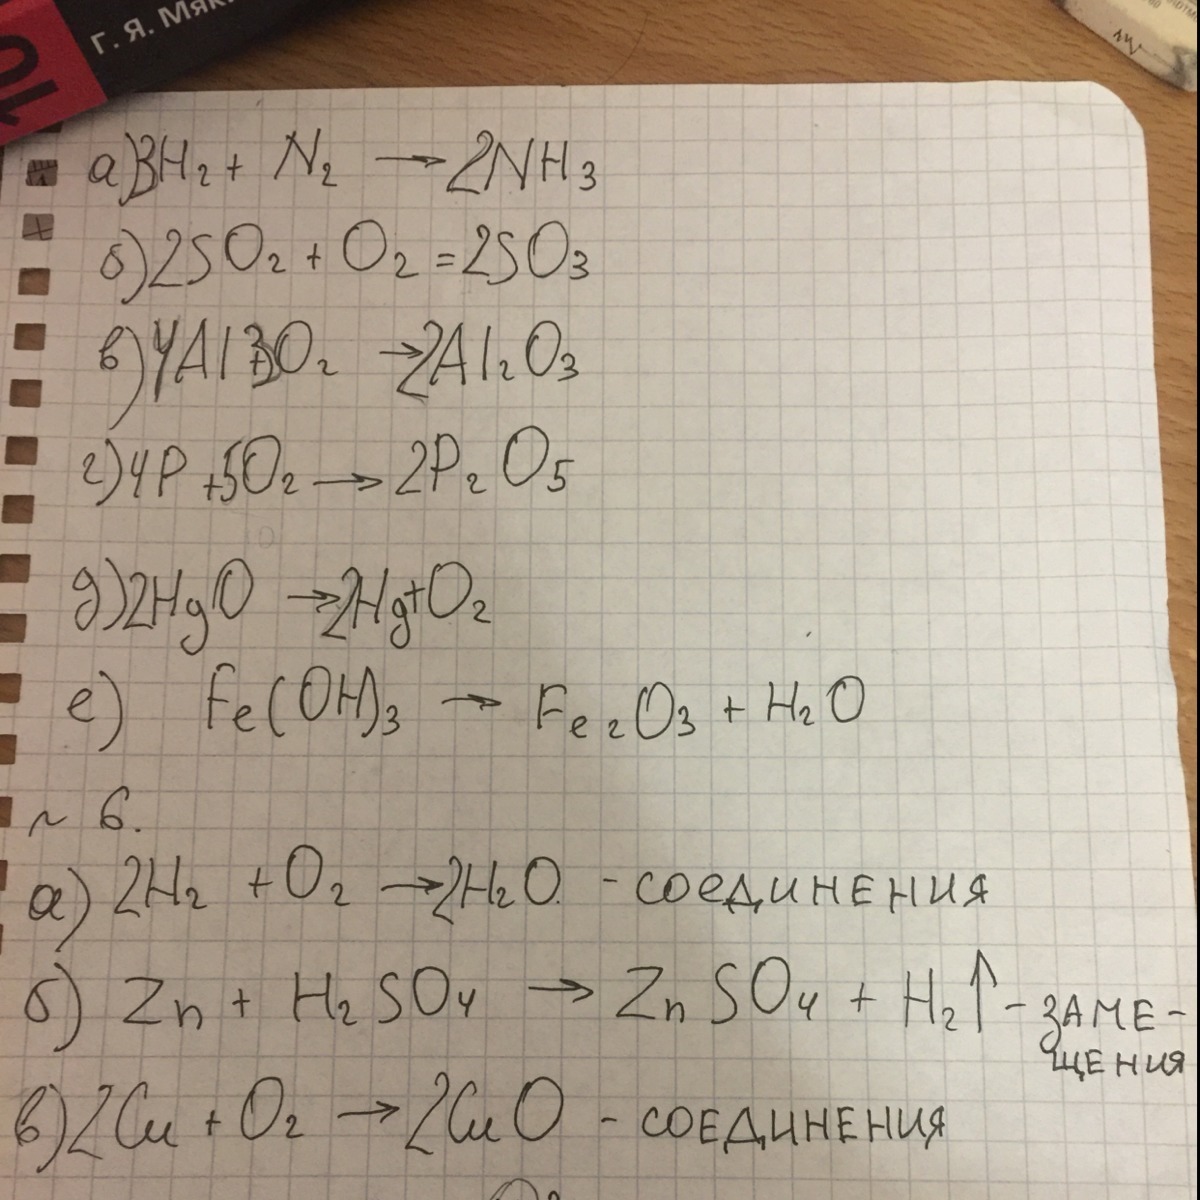 Г. Я. Мяк
а) 3H₂ + N₂ → 2NH₃
б) 2SO₂ + O₂ = 2SO₃
в) 4Al + 3O₂ → 2Al₂O₃
г) 4P + 5O₂ → 2P₂O₅
д) 2HgO → 2Hg + O₂
е) Fe(OH)₃ → Fe₂O₃ + H₂O
~ 6.
а) 2H₂ + O₂ → 2H₂O. - соединения
б) Zn + H₂SO₄ → ZnSO₄ + H₂↑ - заме-
щения
в) 2Cu + O₂ → 2CuO - соединения